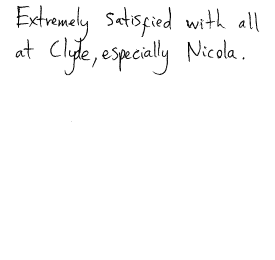 Extremely satisfied with all
at Clyde, especially Nicola.